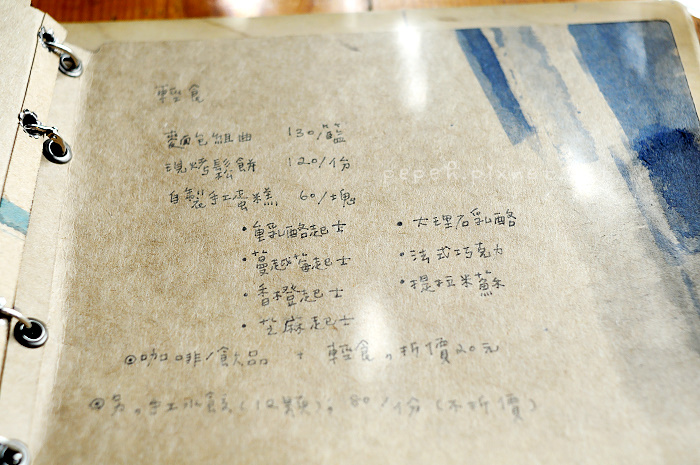 輕食
麵包組曲 130/籃
現烤鬆餅 120/份
自製手工蛋糕 60/塊
・重乳酪起士
・蔓越莓起士
・香橙起士
・芝麻起士
・大理石乳酪
・法式巧克力
・提拉米蘇
◎咖啡/飲品 + 輕食,折價20元
◎另。手工水餃(12顆)。80/份(不折價)